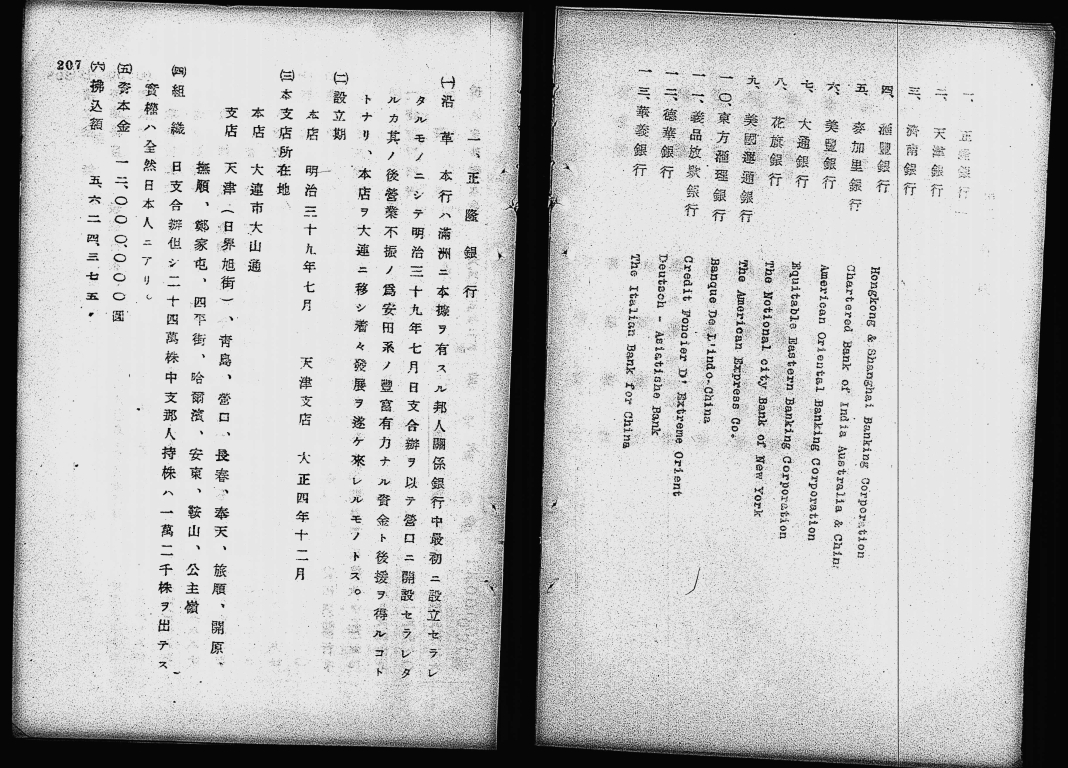 一、正隆銀行
二、天津銀行
三、濟南銀行
四、滙豐銀行
五、麥加里銀行
六、美豐銀行
七、大通銀行
八、花旗銀行
九、美國運通銀行
一〇、東方滙理銀行
一一、義品放欵銀行
一二、德華銀行
一三、華義銀行
Hongkong & Shanghai Banking Corporation
Chartered Bank of India Australia & Chin
American Oriental Banking Corporation
Equitable Eastern Banking Corporation
The Notional city Bank of New York
The American Express Co.
Banque De L'indo-China
Credit Foncier D' Extreme Orient
Deutsch - Asiatishe Bank
The Italian Bank for China
一、正隆銀行
(一)沿革 本行ハ滿洲ニ本據ヲ有スル邦人關係銀行中最初ニ設立セラレ
タルモノニシテ明治三十九年七月日支合辦ヲ以テ營口ニ開設セラレタ
ルカ其ノ後營業不振ノ爲安田系ノ豐富有力ナル資金ト後援ヲ得ルコト
トナリ、本店ヲ大連ニ移シ着々發展ヲ遂ケ來レルモノトス。
(二)設立期
本店 明治三十九年七月 天津支店 大正四年十二月
(三)本支店所在地
本店 大連市大山通
支店 天津(日界旭街)、青島、營口、長春、奉天、旅順、開原、
撫順、鄭家屯、四平街、哈爾濱、安東、鞍山、公主嶺
(四)組織 日支合辦但シ二十四萬株中支那人持株ハ一萬二千株ヲ出テス
實權ハ全然日本人ニアリ。
(五)資本金 一二、〇〇〇、〇〇〇圓
(六)拂込額 五、六二四、三七五、
207